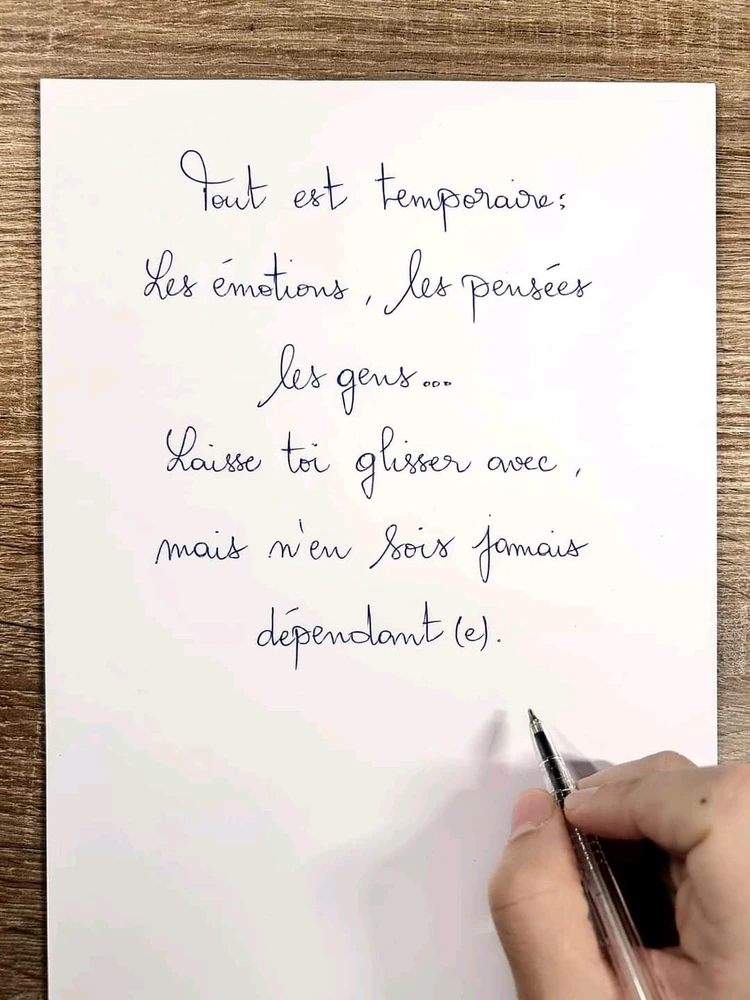 Tout est temporaire :
Les émotions , les pensées
les gens...
Laisse toi glisser avec ,
mais n'en sois jamais
dépendant (e).